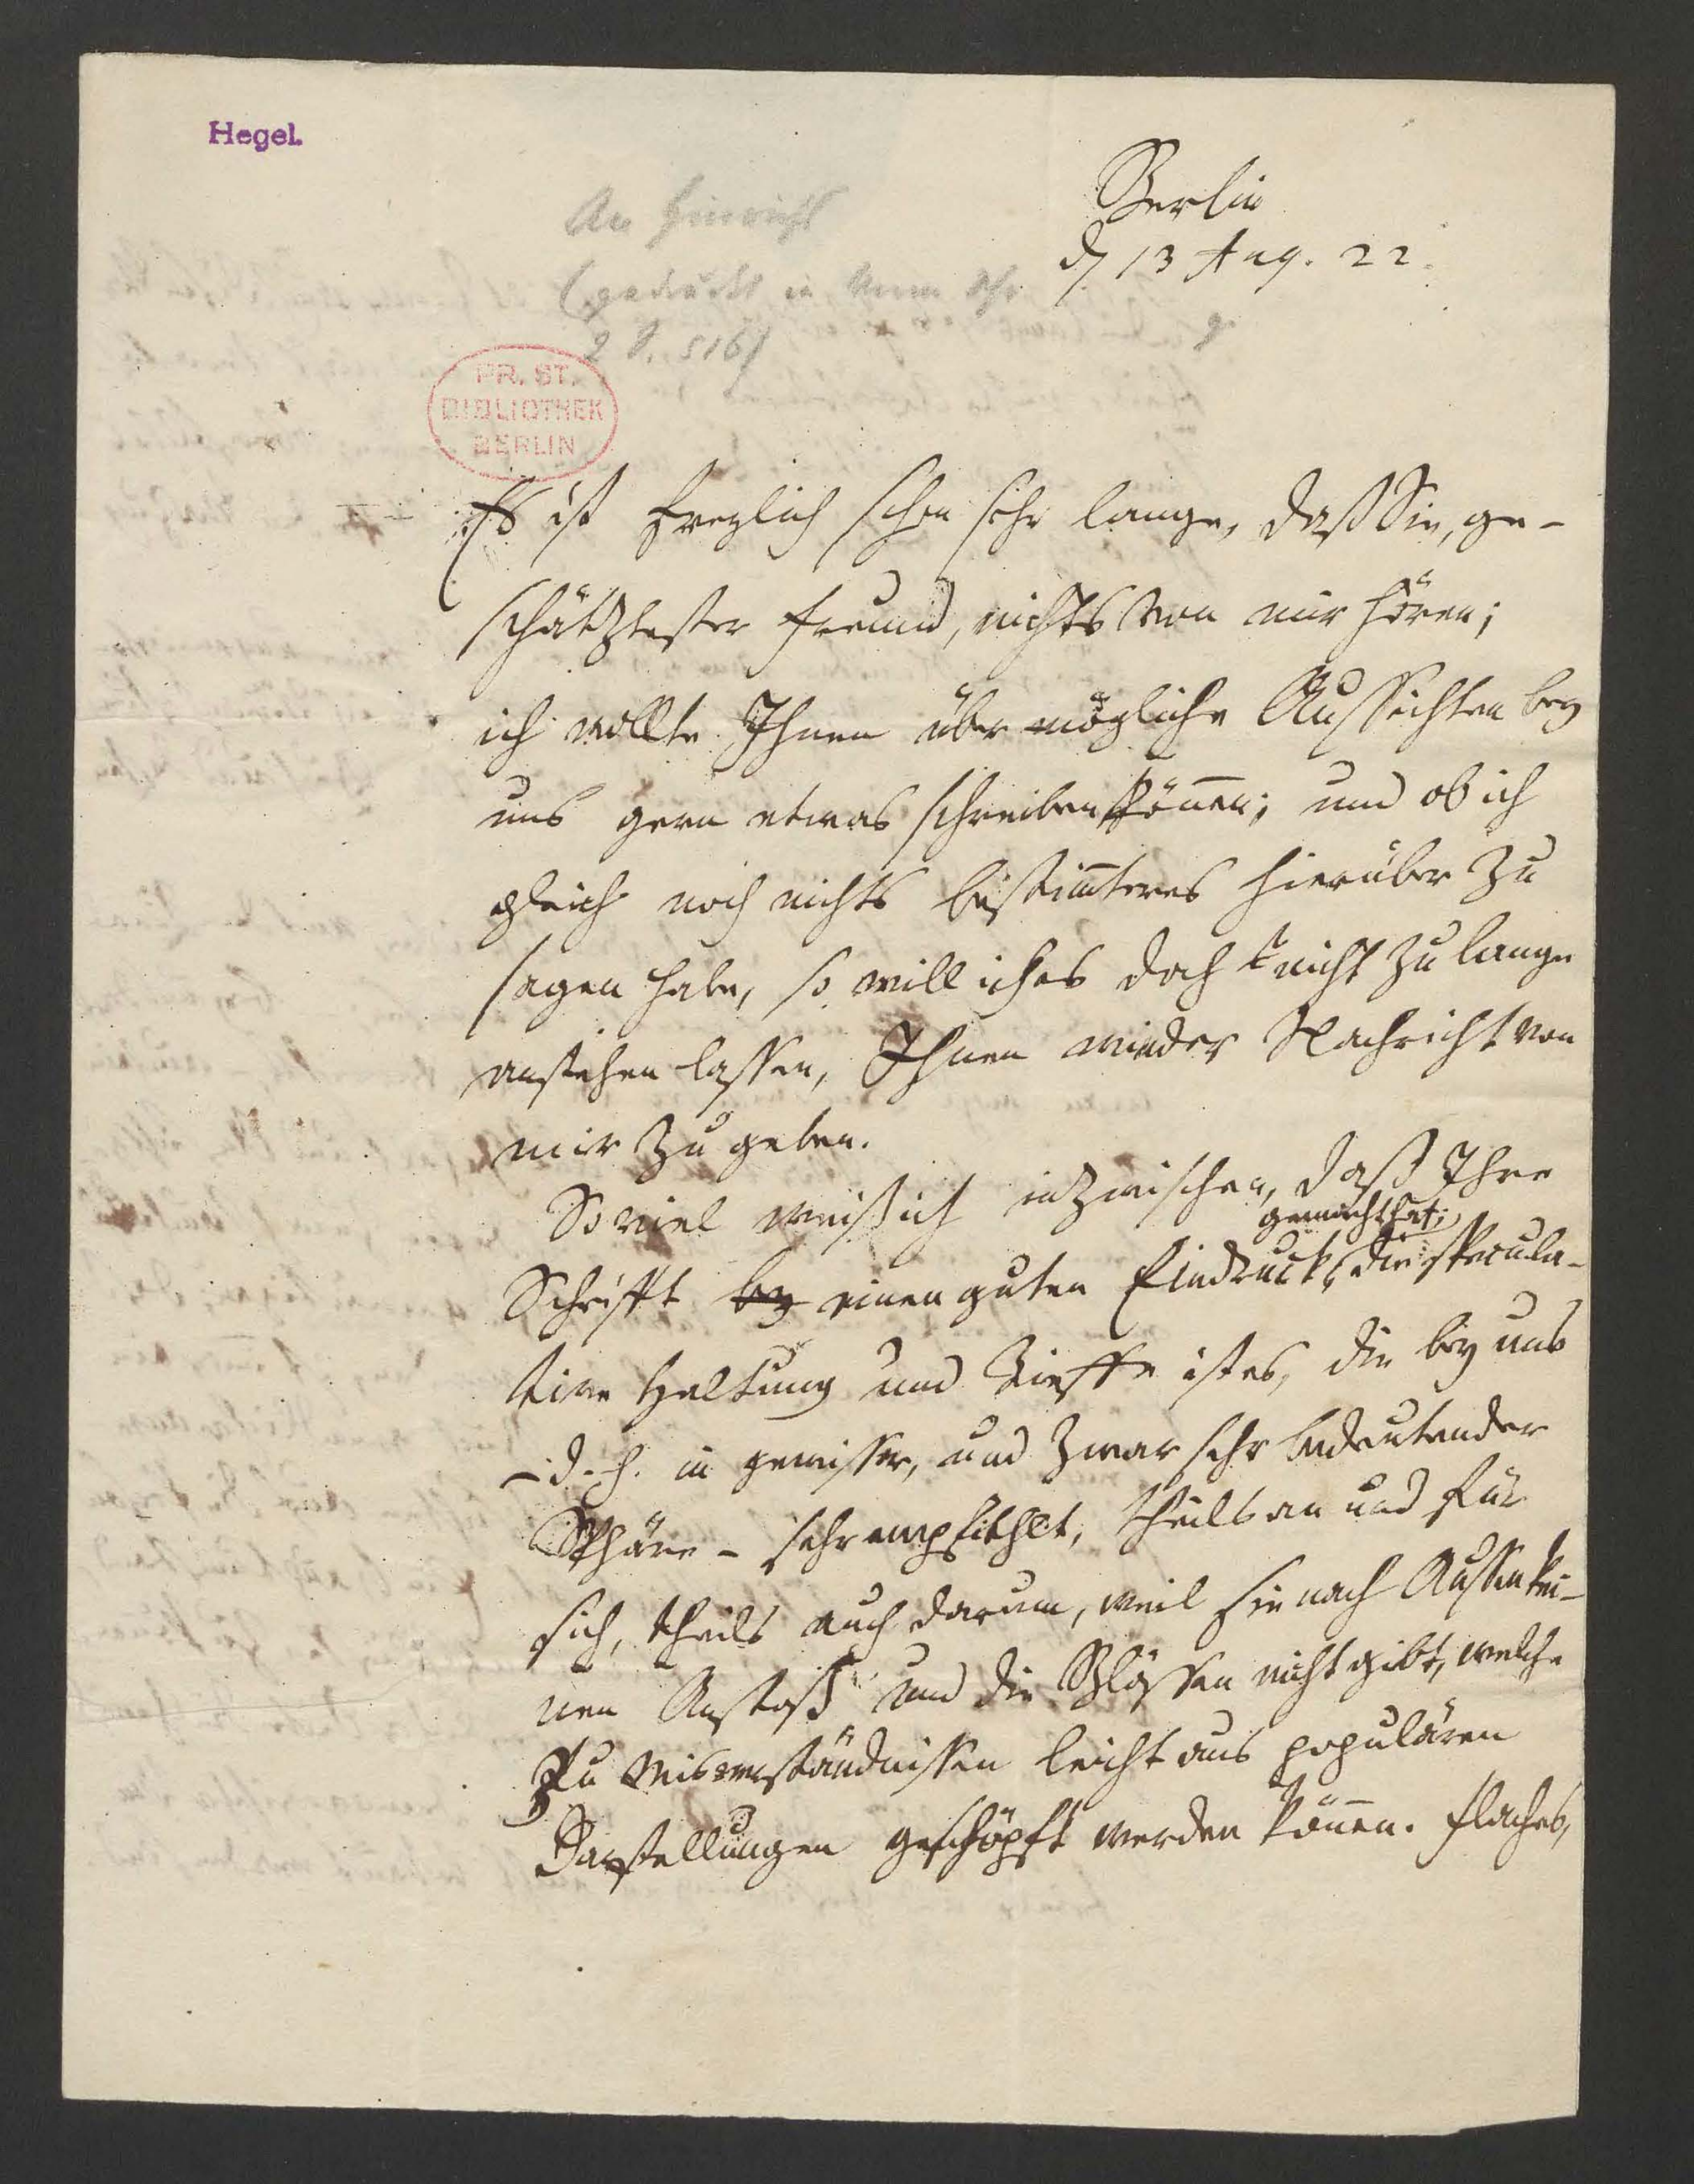 Hegel.
Berlin
d. 13 Aug. 22.
An Hinrichs
(gedruckt in
2 S. 516)
PR. ST.
BIBLIOTHEK
BERLIN
Es ist freylich schon sehr lange, daß Sie, ge-
schätztester Freund, nichts von mir hören;
ich wollte Ihnen über mögliche Aussichten bey
uns gern etwas schreiben können; und ob ich
gleich noch nichts bestim̅teres hierüber zu
sagen habe, so will ich es doch nicht zu lange
anstehen lassen, Ihnen wieder Nachricht von
mir zu geben.
So viel weiß ich inzwischen, daß Ihre
gemacht hat;
Schrifft bey einen guten Eindruck, die specula-
tive Haltung und Tieffe ist es, die bey uns
– d. h. in gewisser, und zwar sehr bedeutender
Sphäre – sehr empfiehlt, theils an und für
sich, theils auch darum, weil sie nach Aussen kei-
nen Anstoß und die Blössen nicht gibt, welche
zu Misverständnissen leicht aus populären
Darstellungen geschöpft werden kön̅en. Flaches,